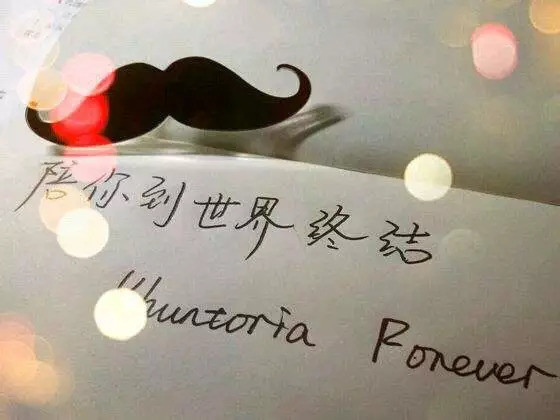 陪你到世界终结
Khuntoria Forever